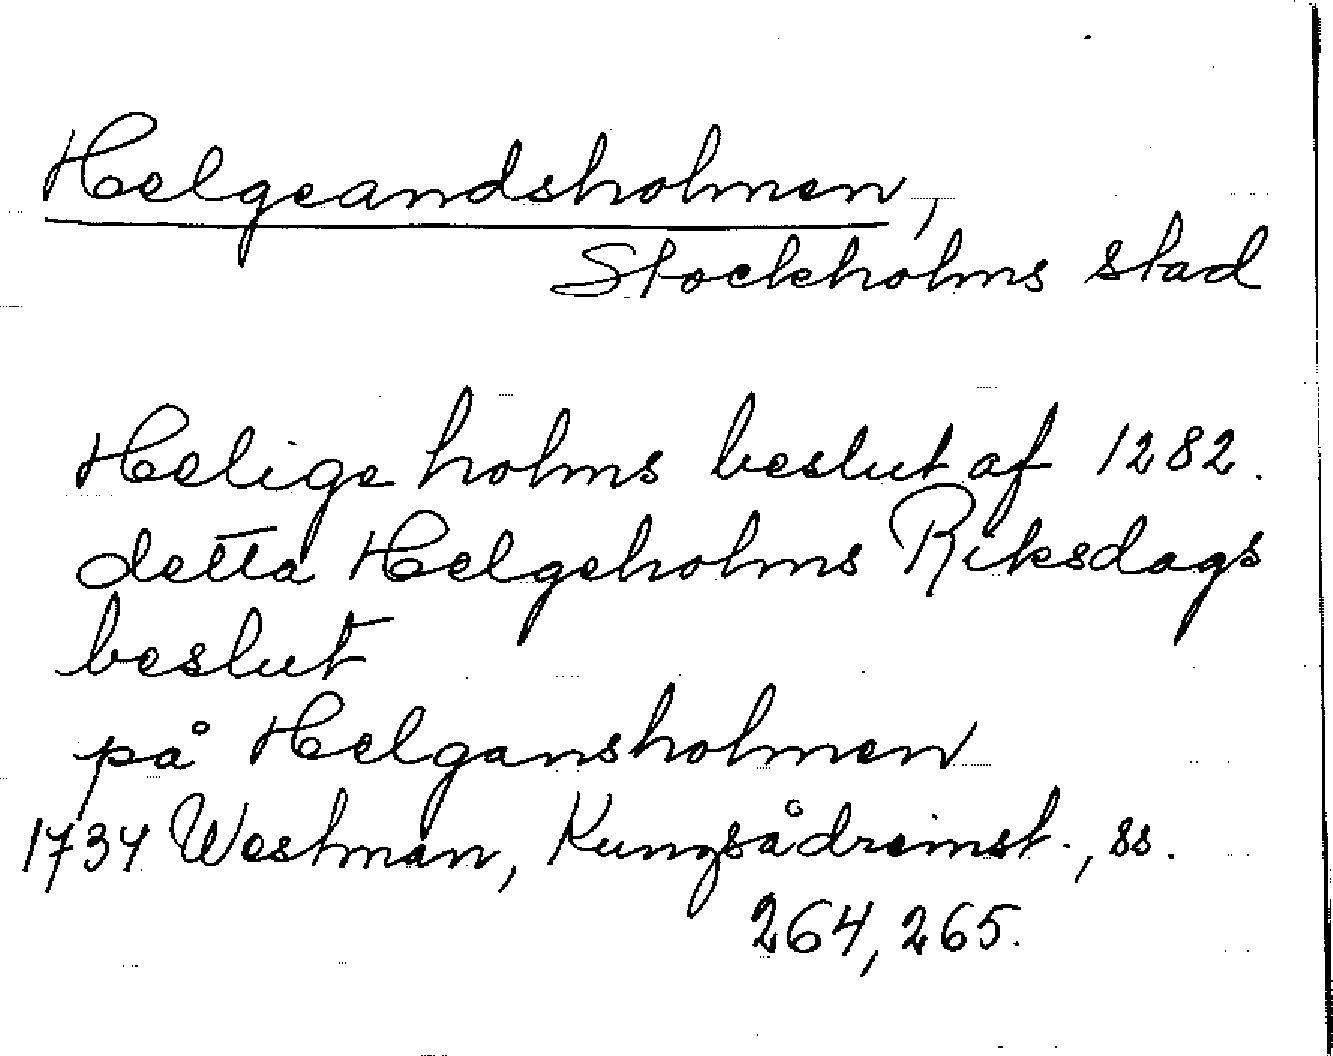 Helgeandsholmen,
Stockholms stad
Helige holms beslut af 1282.
detta Helgeholms Riksdags
beslut
på Helgansholmen
1734 Westman, Kungsådreinst., ss.
264, 265.